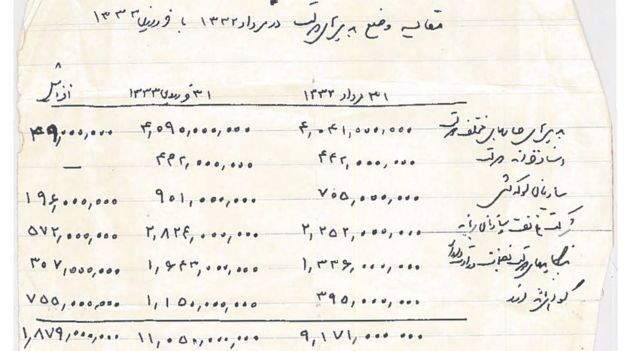 مقایسه وضع بدهیهای دولت در مرداد ۱۳۳۲ با فروردین ۱۳۳۳
۳۱ مرداد ۱۳۳۲ ۳۱ فروردین ۱۳۳۳ افزایش
بدهیهای حسابهای مختلف دولت ۴,۰۴۱,۰۰۰,۰۰۰ ۴,۰۹۰,۰۰۰,۰۰۰ ۴۹,۰۰۰,۰۰۰
اسناد خزانه دولت ۴۴۲,۰۰۰,۰۰۰ ۴۴۲,۰۰۰,۰۰۰ —
سازمان ۷۰۵,۰۰۰,۰۰۰ ۹۰۱,۰۰۰,۰۰۰ ۱۹۶,۰۰۰,۰۰۰
شرکت نفت سازمان برنامه ۲,۲۵۲,۰۰۰,۰۰۰ ۲,۸۲۴,۰۰۰,۰۰۰ ۵۷۲,۰۰۰,۰۰۰
بنگاههای دولتی ۱,۳۳۶,۰۰۰,۰۰۰ ۱,۶۴۳,۰۰۰,۰۰۰ ۳۰۷,۰۰۰,۰۰۰
۳۹۵,۰۰۰,۰۰۰ ۱,۱۵۰,۰۰۰,۰۰۰ ۷۵۵,۰۰۰,۰۰۰
۹,۱۷۱,۰۰۰,۰۰۰ ۱۱,۰۵۰,۰۰۰,۰۰۰ ۱,۸۷۹,۰۰۰,۰۰۰